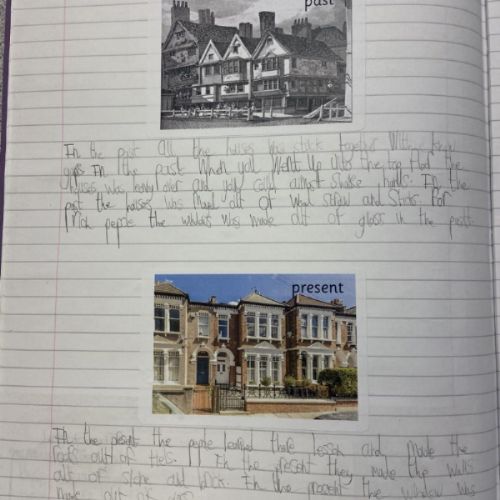 past
In the past all the houses was stuck together with no
gaps In the past when you went up to the top that the
houses was leany over and you could almost shake hands. In the
past the houses was made out of straw and sticks. For
rich people the was made out of glass in the past.
present
In the present the people learned there lesson and made the
roofs out of In the present they made the walls
out of stone and brick. In the present the window was
made out of